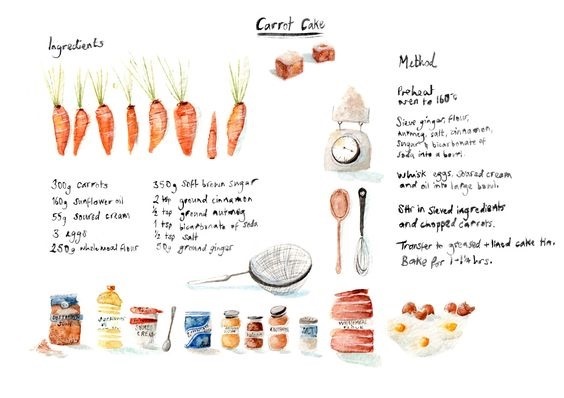 Carrot Cake
Ingredients
300g carrots
160g sunflower oil
55g soured cream
3 eggs
250g wholemeal flour
350g soft brown sugar
2 tsp ground cinnamon
½ tsp ground nutmeg
1 tsp bicarbonate of soda
½ tsp salt
50g ground ginger
Method
Preheat
oven to 160°c
Sieve ginger, flour,
nutmeg, salt, cinnamon,
sugar & bicarbonate of
soda into a bowl.
Whisk eggs, soured cream
and oil into large bowl.
Stir in sieved ingredients
and chopped carrots.
Transfer to greased + lined cake tin.
Bake for 1-1¼ hrs.
WHOLEMEAL
FLOUR